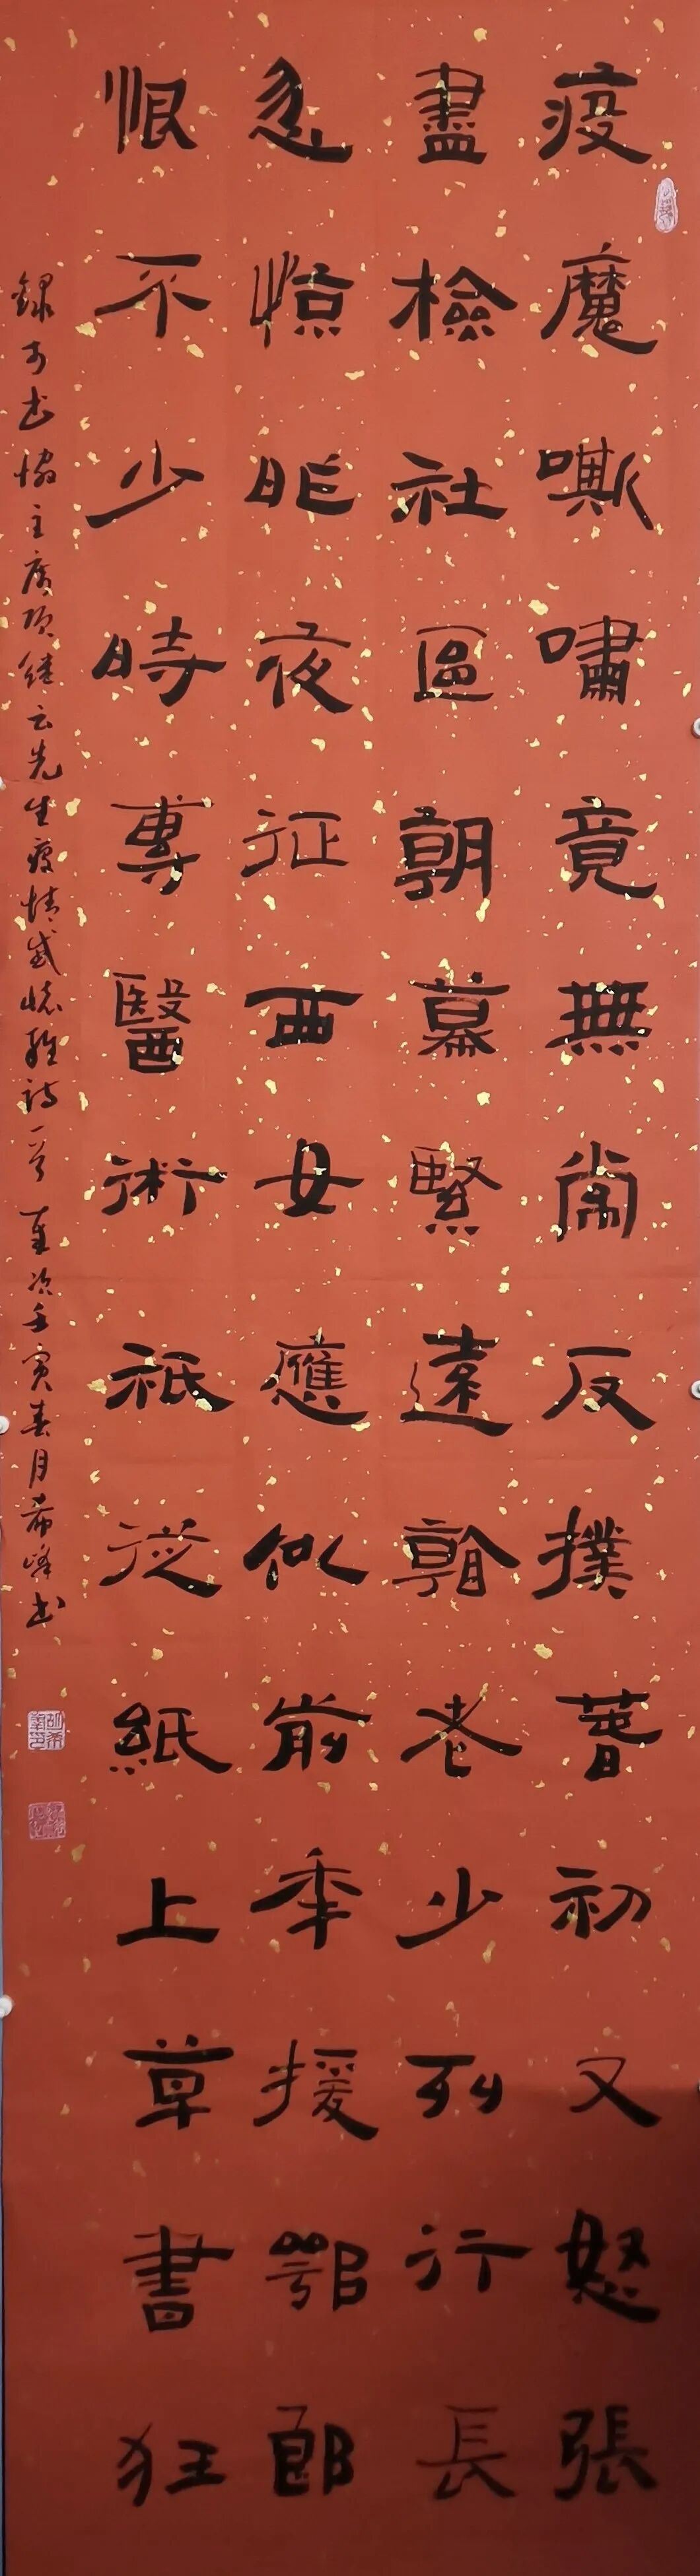 疫魔嘶嘯竟無常反撲春初又怒張
盡檢社區朝暮緊遠翰老少列行長
忽惊昨夜征西女應似前年援鄂郎
恨不少時專醫術祇從紙上草書狂
錄市書協主席项继云先生疫情感懷律詩一首 歲次壬寅春月希峰书